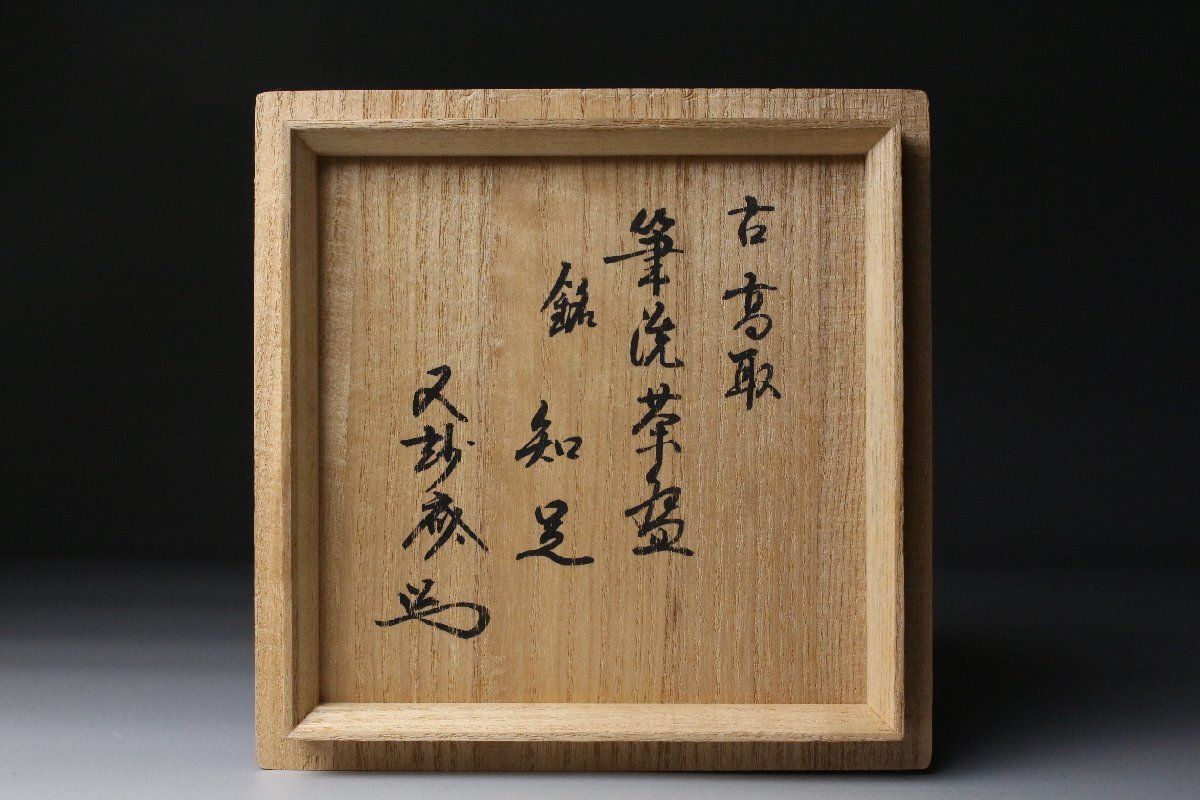 古高取
筆洗茶盌
銘
知足
又玅斎